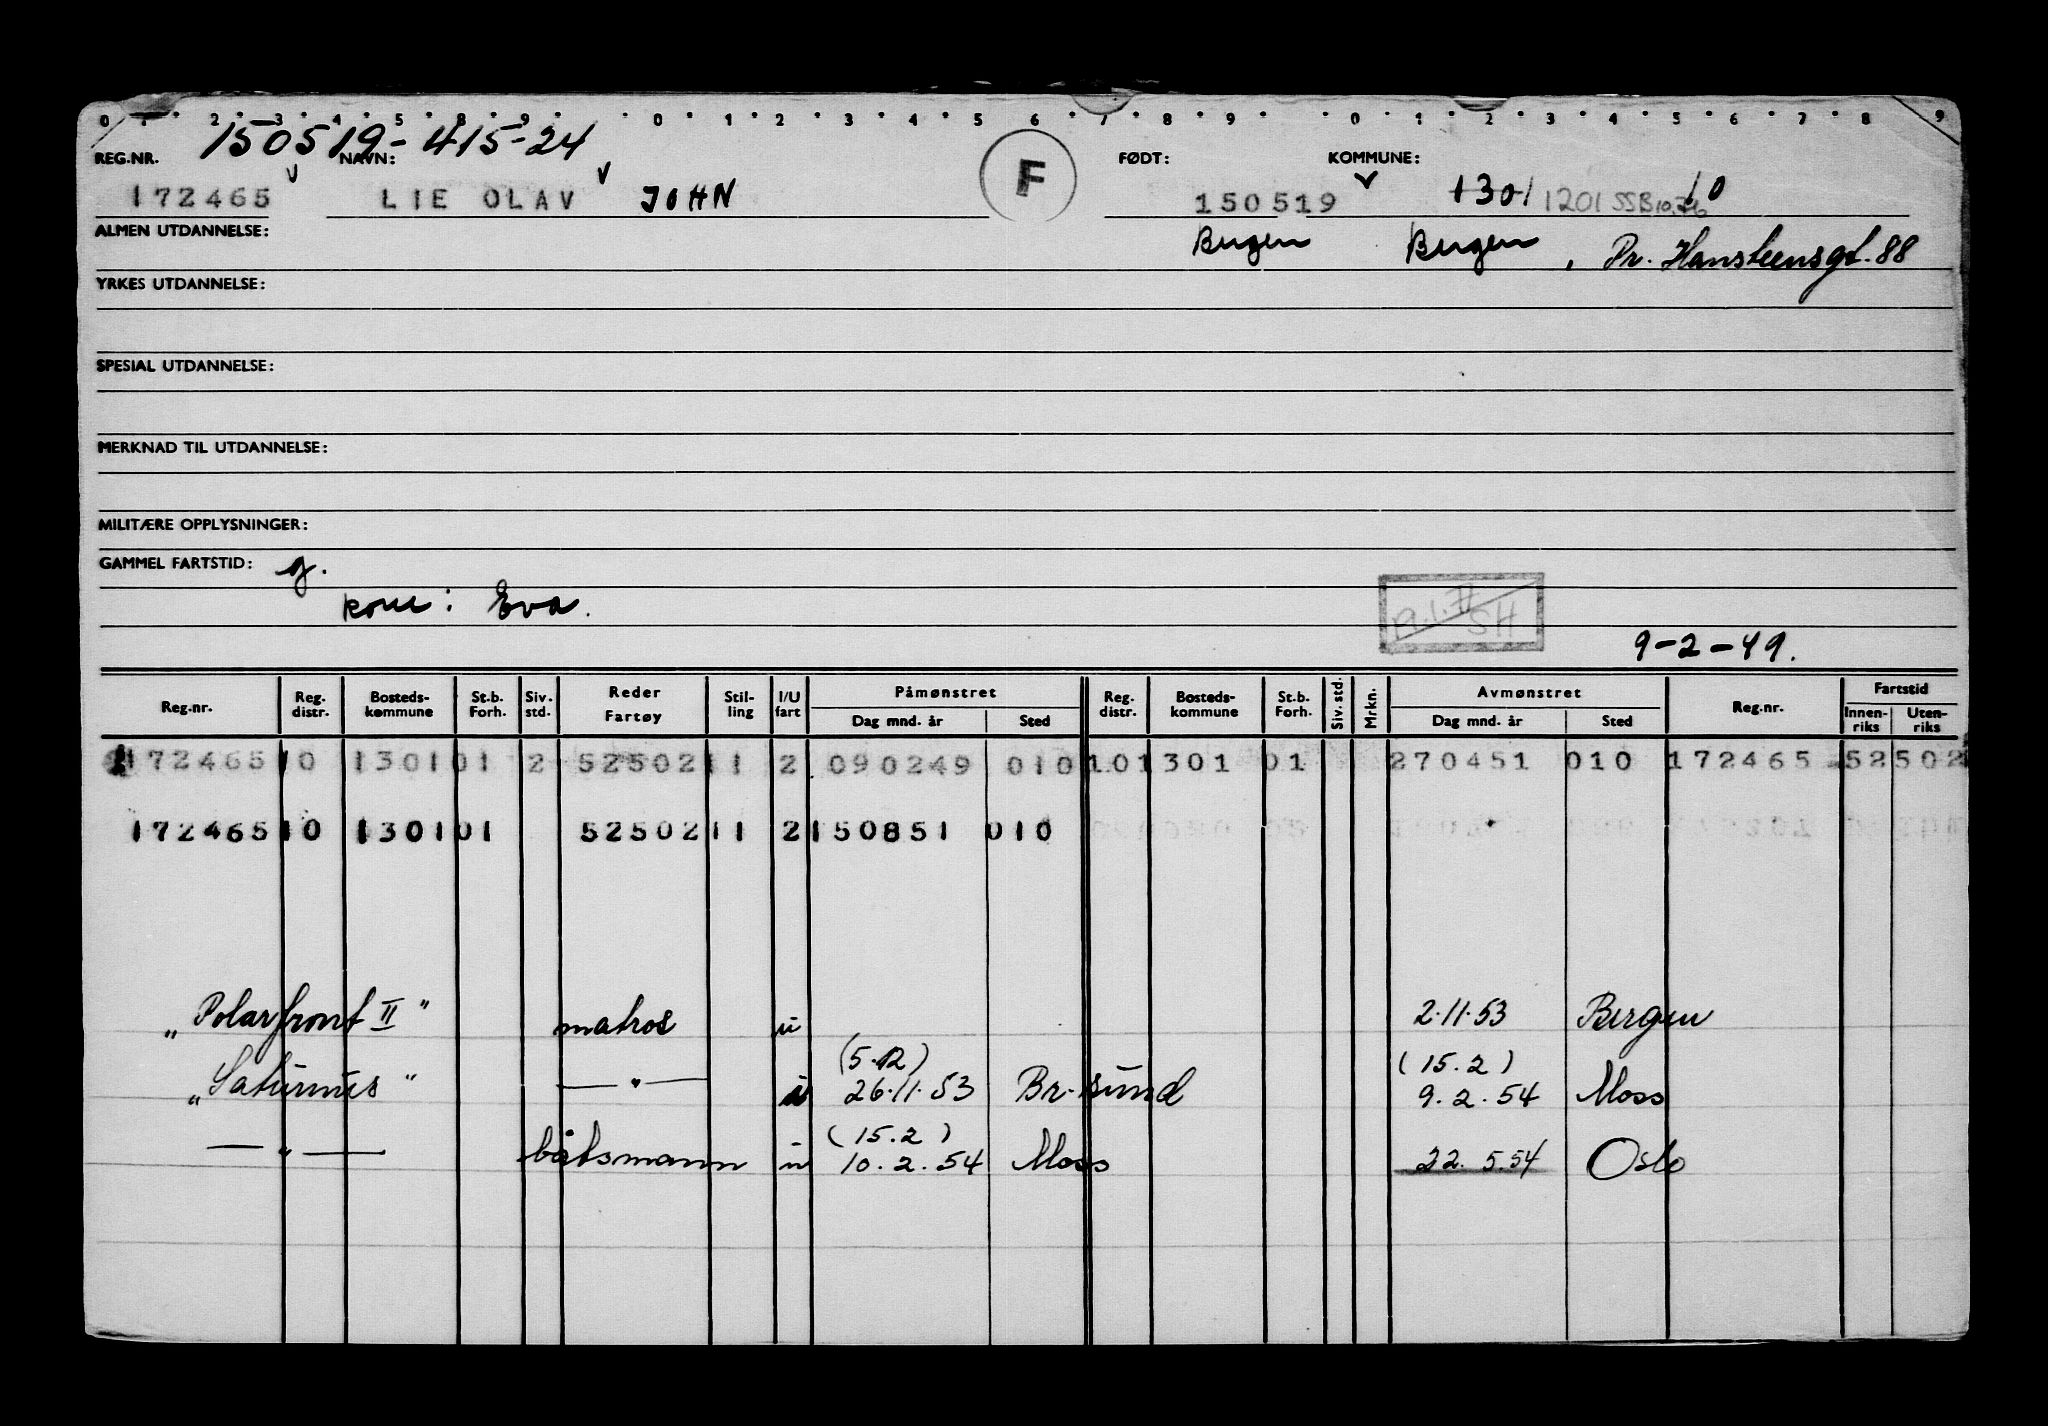 0 1 2 3 4 5 8 9 0 1 2 3 4 5 6 7 8 9 0 1 2 3 4 5 6 7 8 9
150519-415-24
REG.NR. NAVN: F FØDT: KOMMUNE:
172465 LIE OLAV JOHN 150519 1301 1201 SSB 10
ALMEN UTDANNELSE: Bergen Bergen, Pr. Hansteensgt. 88
YRKES UTDANNELSE:
SPESIAL UTDANNELSE:
MERKNAD TIL UTDANNELSE:
MILITÆRE OPPLYSNINGER:
GAMMEL FARTSTID: g.
kone: Eva.
SH
9-2-49.
Reg.nr. Reg. distr. Bosteds-kommune St.b. Forh. Siv. std. Reder Fartøy Stil-ling I/U fart Påmønstret Dag mnd. år Sted Reg. distr. Bosteds-kommune St.b. Forh. Siv. std. Mrkn. Avmønstret Dag mnd. år Sted Reg.nr. Fartstid Innen-riks Uten-riks
172465 10 1301 01 2 52502 11 2 090249 010 10 1301 01 270451 010 172465 52502
172465 10 1301 01 52502 11 2 150851 010
"Polarfront II" matros u 2.11.53 Bergen
(5.12) (15.2)
"Saturnus" — " — u 26.11.53 Br.sund 9.2.54 Moss
(15.2)
— " — båtsmann u 10.2.54 Moss 22.5.54 Oslo